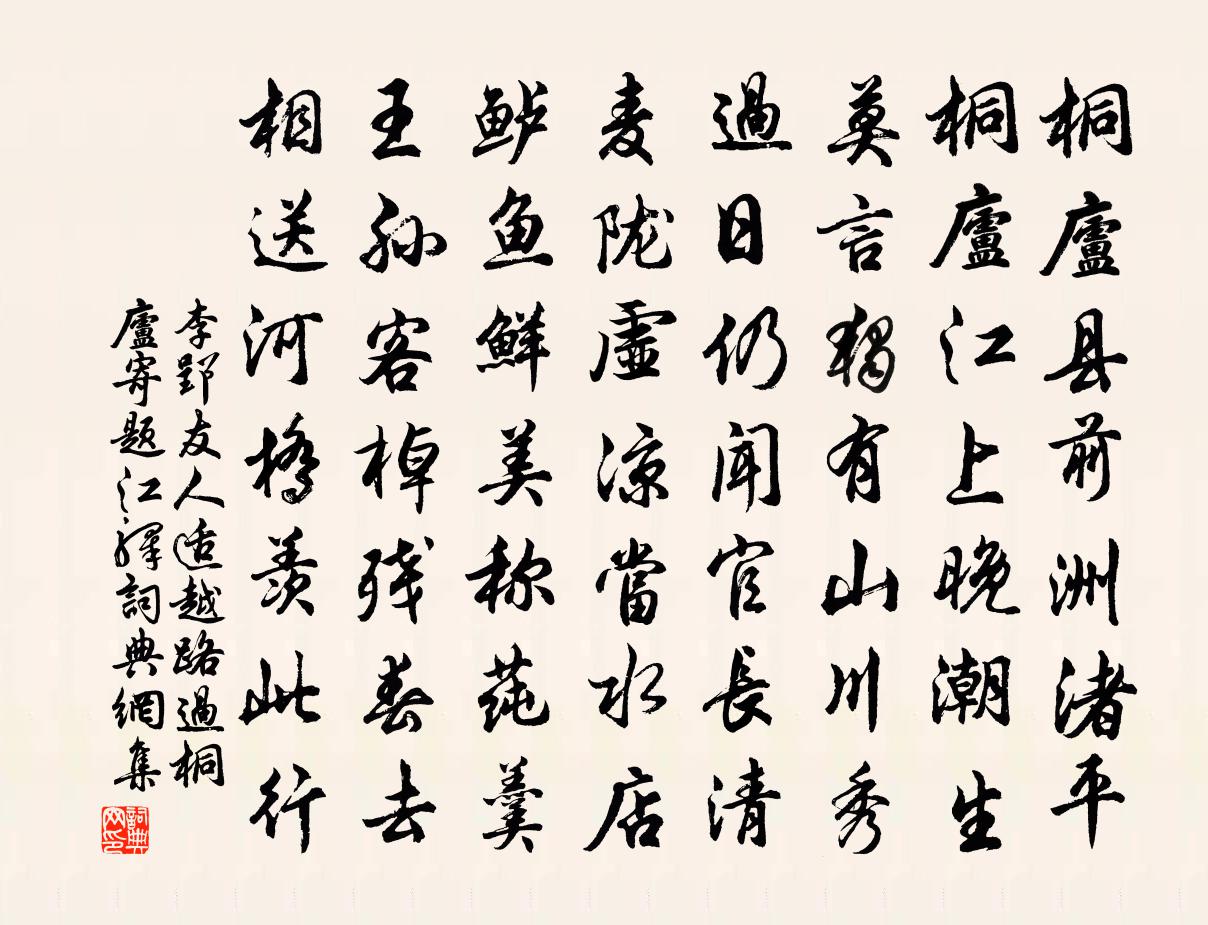 桐廬县前洲渚平
桐廬江上晚潮生
莫言獨有山川秀
過日仍聞官長清
麦陇虛凉當水店
鲈鱼鮮美称莼羹
王孙客棹残春去
相送河橋羡此行
李郢友人适越路過桐
廬寄题江驛詞典網集
詞典
网印